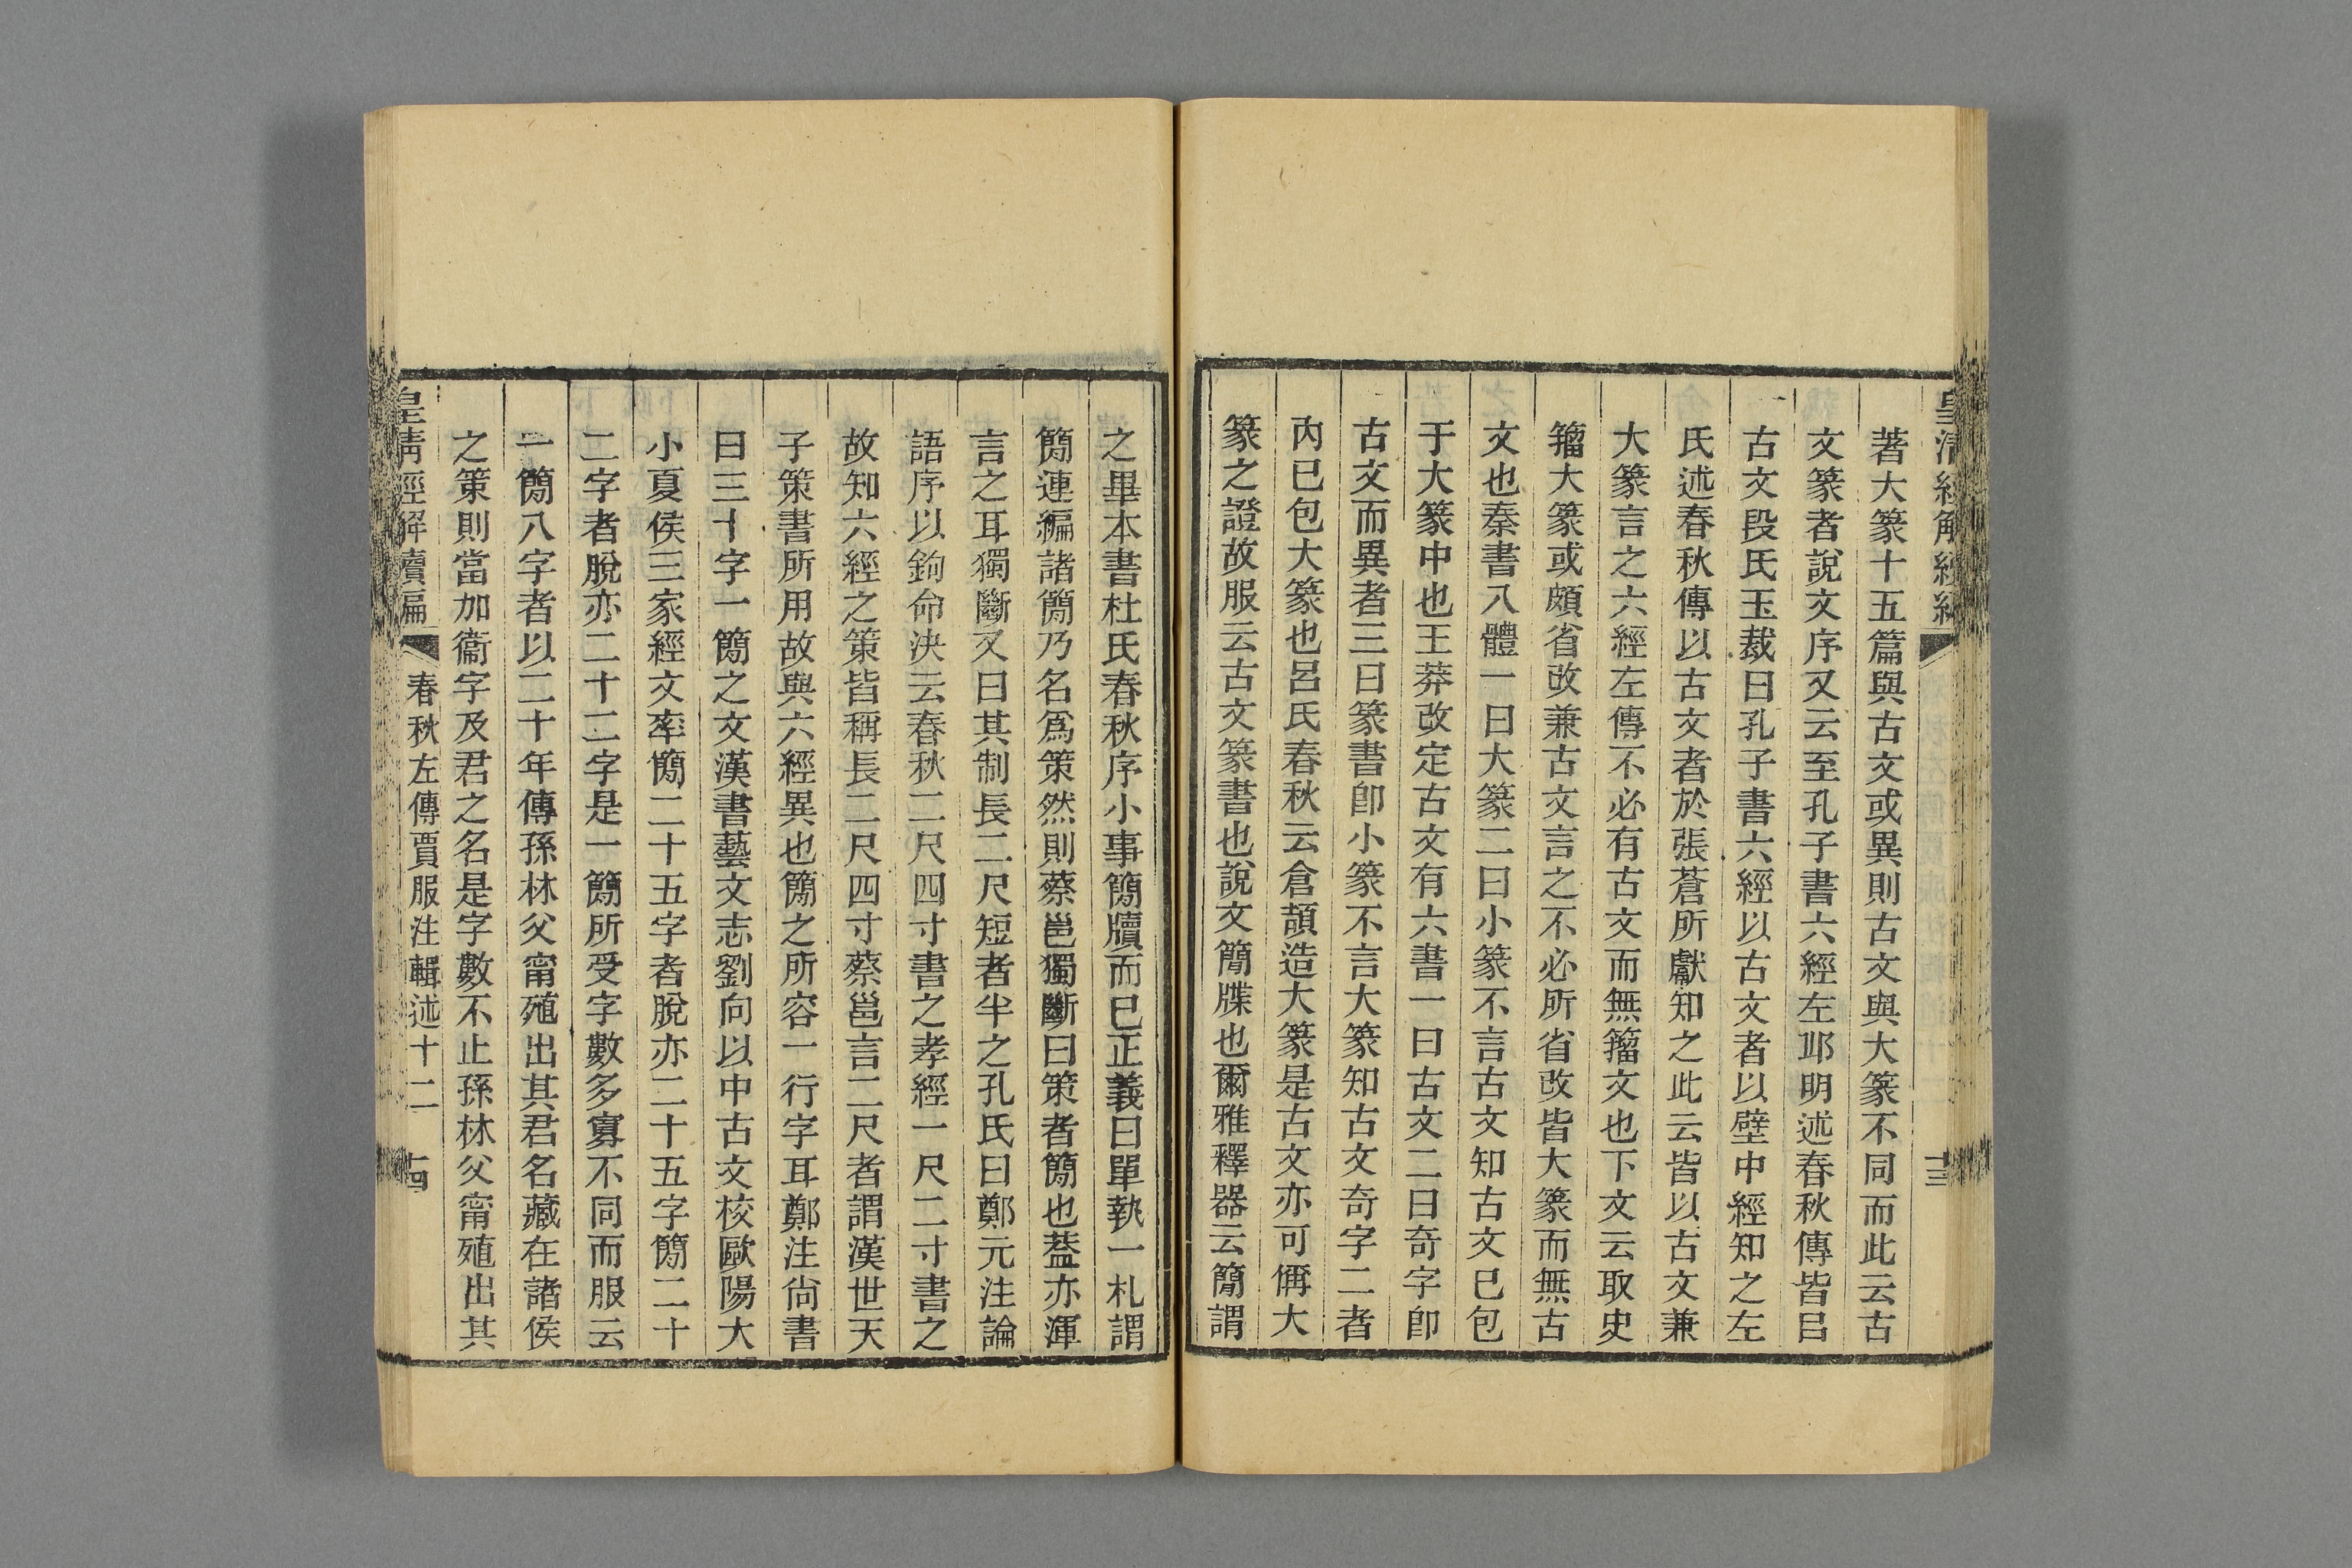 皇清經解續編
十三
著大篆十五篇與古文或異則古文與大篆不同而此云古
文篆者說文序又云至孔子書六經左邱明述春秋傳皆㠯
古文段氏玉裁曰孔子書六經以古文者以壁中經知之左
氏述春秋傳以古文者於張蒼所獻知之此云皆以古文兼
大篆言之六經左傳不必有古文而無籀文也下文云取史
籀大篆或頗省改兼古文言之不必所省改皆大篆而無古
文也秦書八體一曰大篆二曰小篆不言古文知古文已包
于大篆中也王莽改定古文有六書一曰古文二曰奇字卽
古文而異者三曰篆書卽小篆不言大篆知古文奇字二者
內已包大篆也呂氏春秋云倉頡造大篆是古文亦可偁大
篆之證故服云古文篆書也說文簡牒也爾雅釋器云簡謂
之畢本書杜氏春秋序小事簡牘而已正義曰單執一札謂
簡連編諸簡乃名爲策然則蔡邕獨斷曰策者簡也葢亦渾
言之耳獨斷又曰其制長二尺短者半之孔氏曰鄭元注論
語序以鉤命決云春秋二尺四寸書之孝經一尺二寸書之
故知六經之策皆稱長二尺四寸蔡邕言二尺者謂漢世天
子策書所用故與六經異也簡之所容一行字耳鄭注尙書
曰三十字一簡之文漢書藝文志劉向以中古文校歐陽大
小夏侯三家經文率簡二十五字者脫亦二十五字簡二十
二字者脫亦二十二字是一簡所受字數多寡不同而服云
一簡八字者以二十年傳孫林父甯殖出其君名藏在諸侯
之策則當加衞字及君之名是字數不止孫林父甯殖出其
皇清經解續編
春秋左傳賈服注輯述十二
十四